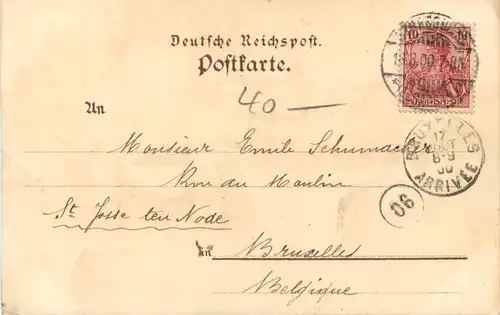 Deutsche Reichspost.
Postkarte.
40 —
An
Monsieur Emile Schumacher
Rue du Moulin
St. Josse ten Node
in Bruxelles
Belgique
10 10
BRUXELLES
17
8-9
00
ARRIVÉE
90